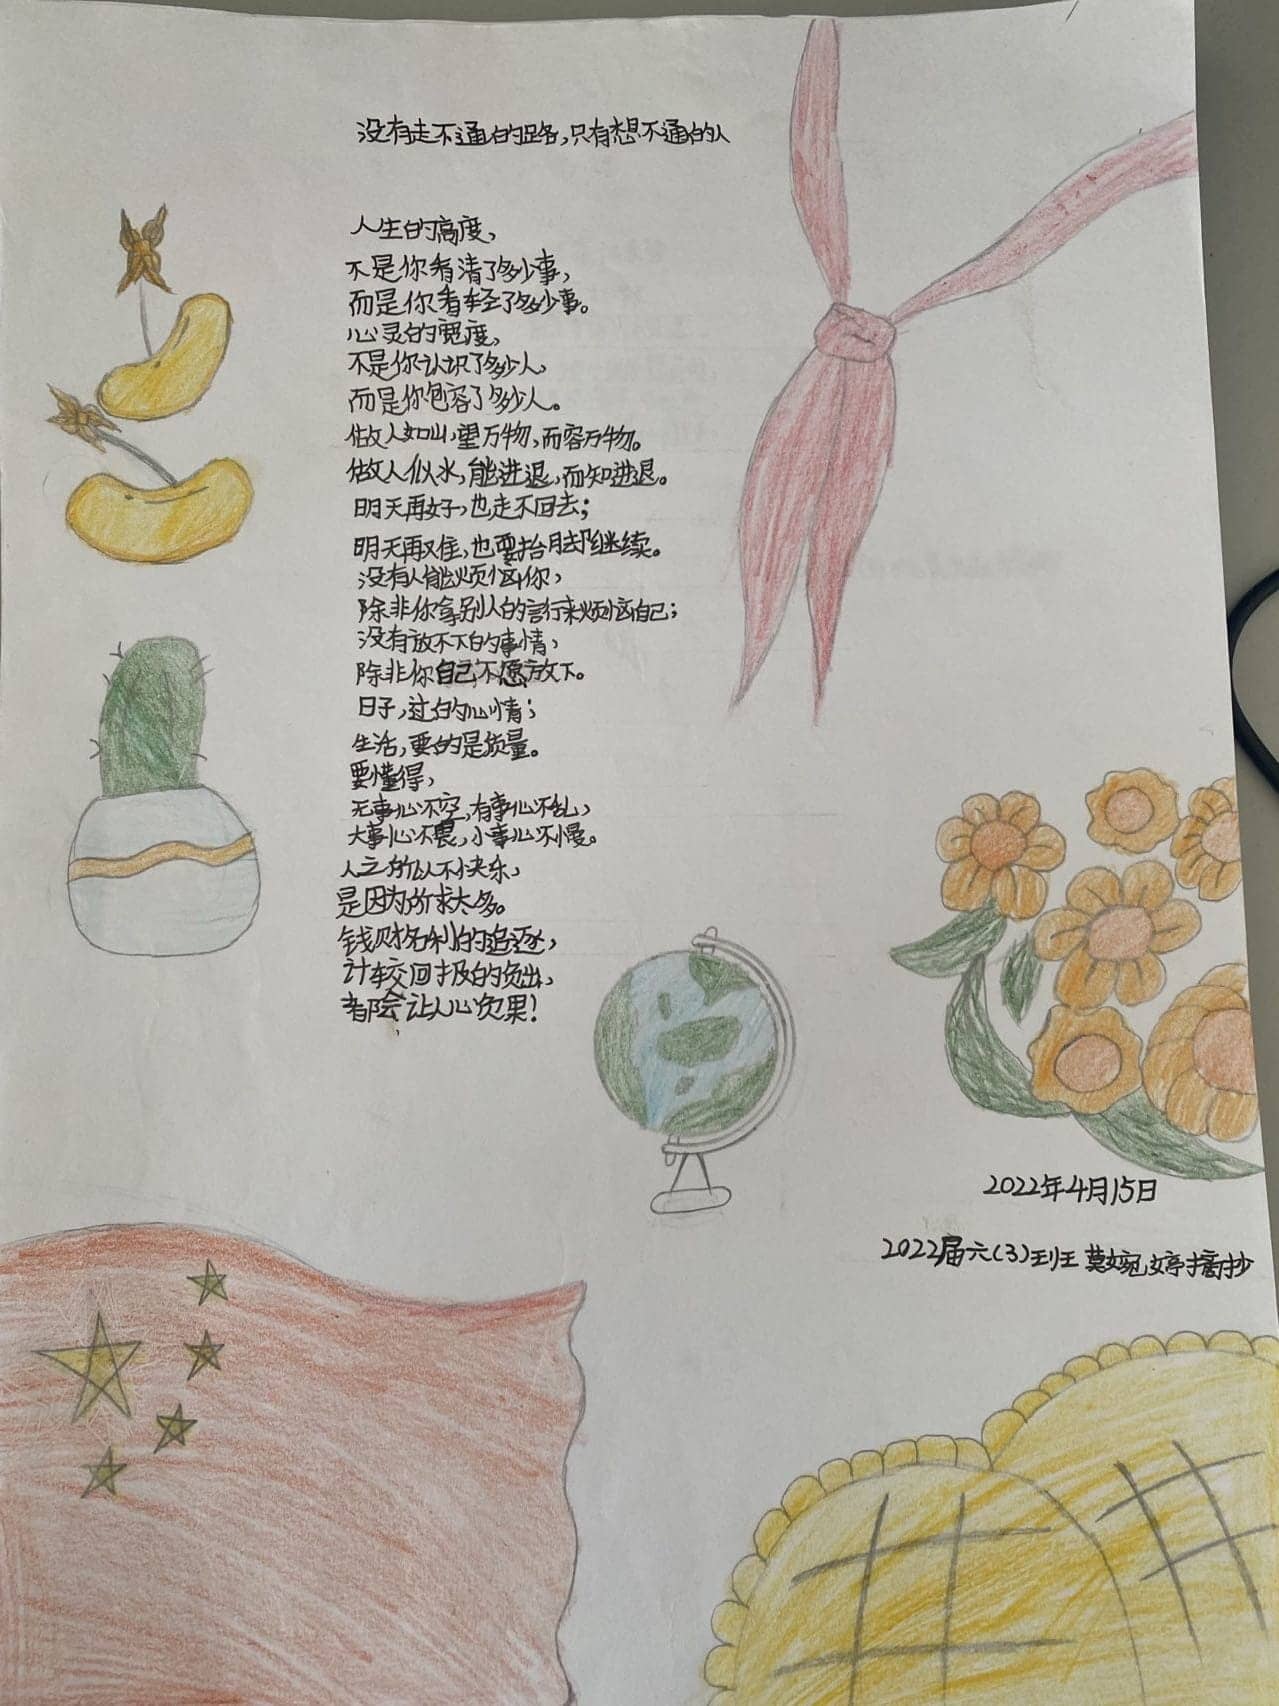 没有走不通的路,只有想不通的人
人生的高度,
不是你看清了多少事,
而是你看轻了多少事。
心灵的宽度,
不是你认识了多少人,
而是你包容了多少人。
做人如山,望万物,而容万物。
做人似水,能进退,而知进退。
明天再好,也走不回去;
明天再难,也要抬脚继续。
没有人能烦恼你,
除非你拿别人的言行来烦恼自己;
没有放不下的事情,
除非你自己不愿放下。
日子,过的心情;
生活,要的是质量。
要懂得,
无事心不空,有事心不乱,
大事心不畏,小事心不慢。
人之所以不快乐,
是因为所求太多。
钱财名利的追逐,
计较回报的负出,
都会让人心负累!
2022年4月15日
2022届六(3)班 莫婉婷摘抄